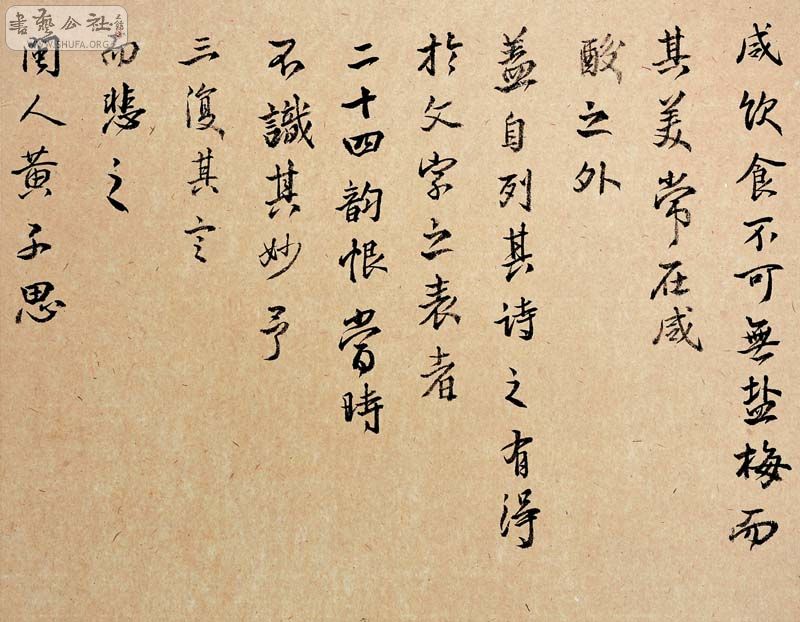 咸饮食不可無盐梅而
其美常在咸
酸之外
盖自列其诗之有得
於文字之表者
二十四韵恨當時
不識其妙予
三復其言
而悲之
闽人黄子思
書藝公社
WWW.SHUFA.ORG